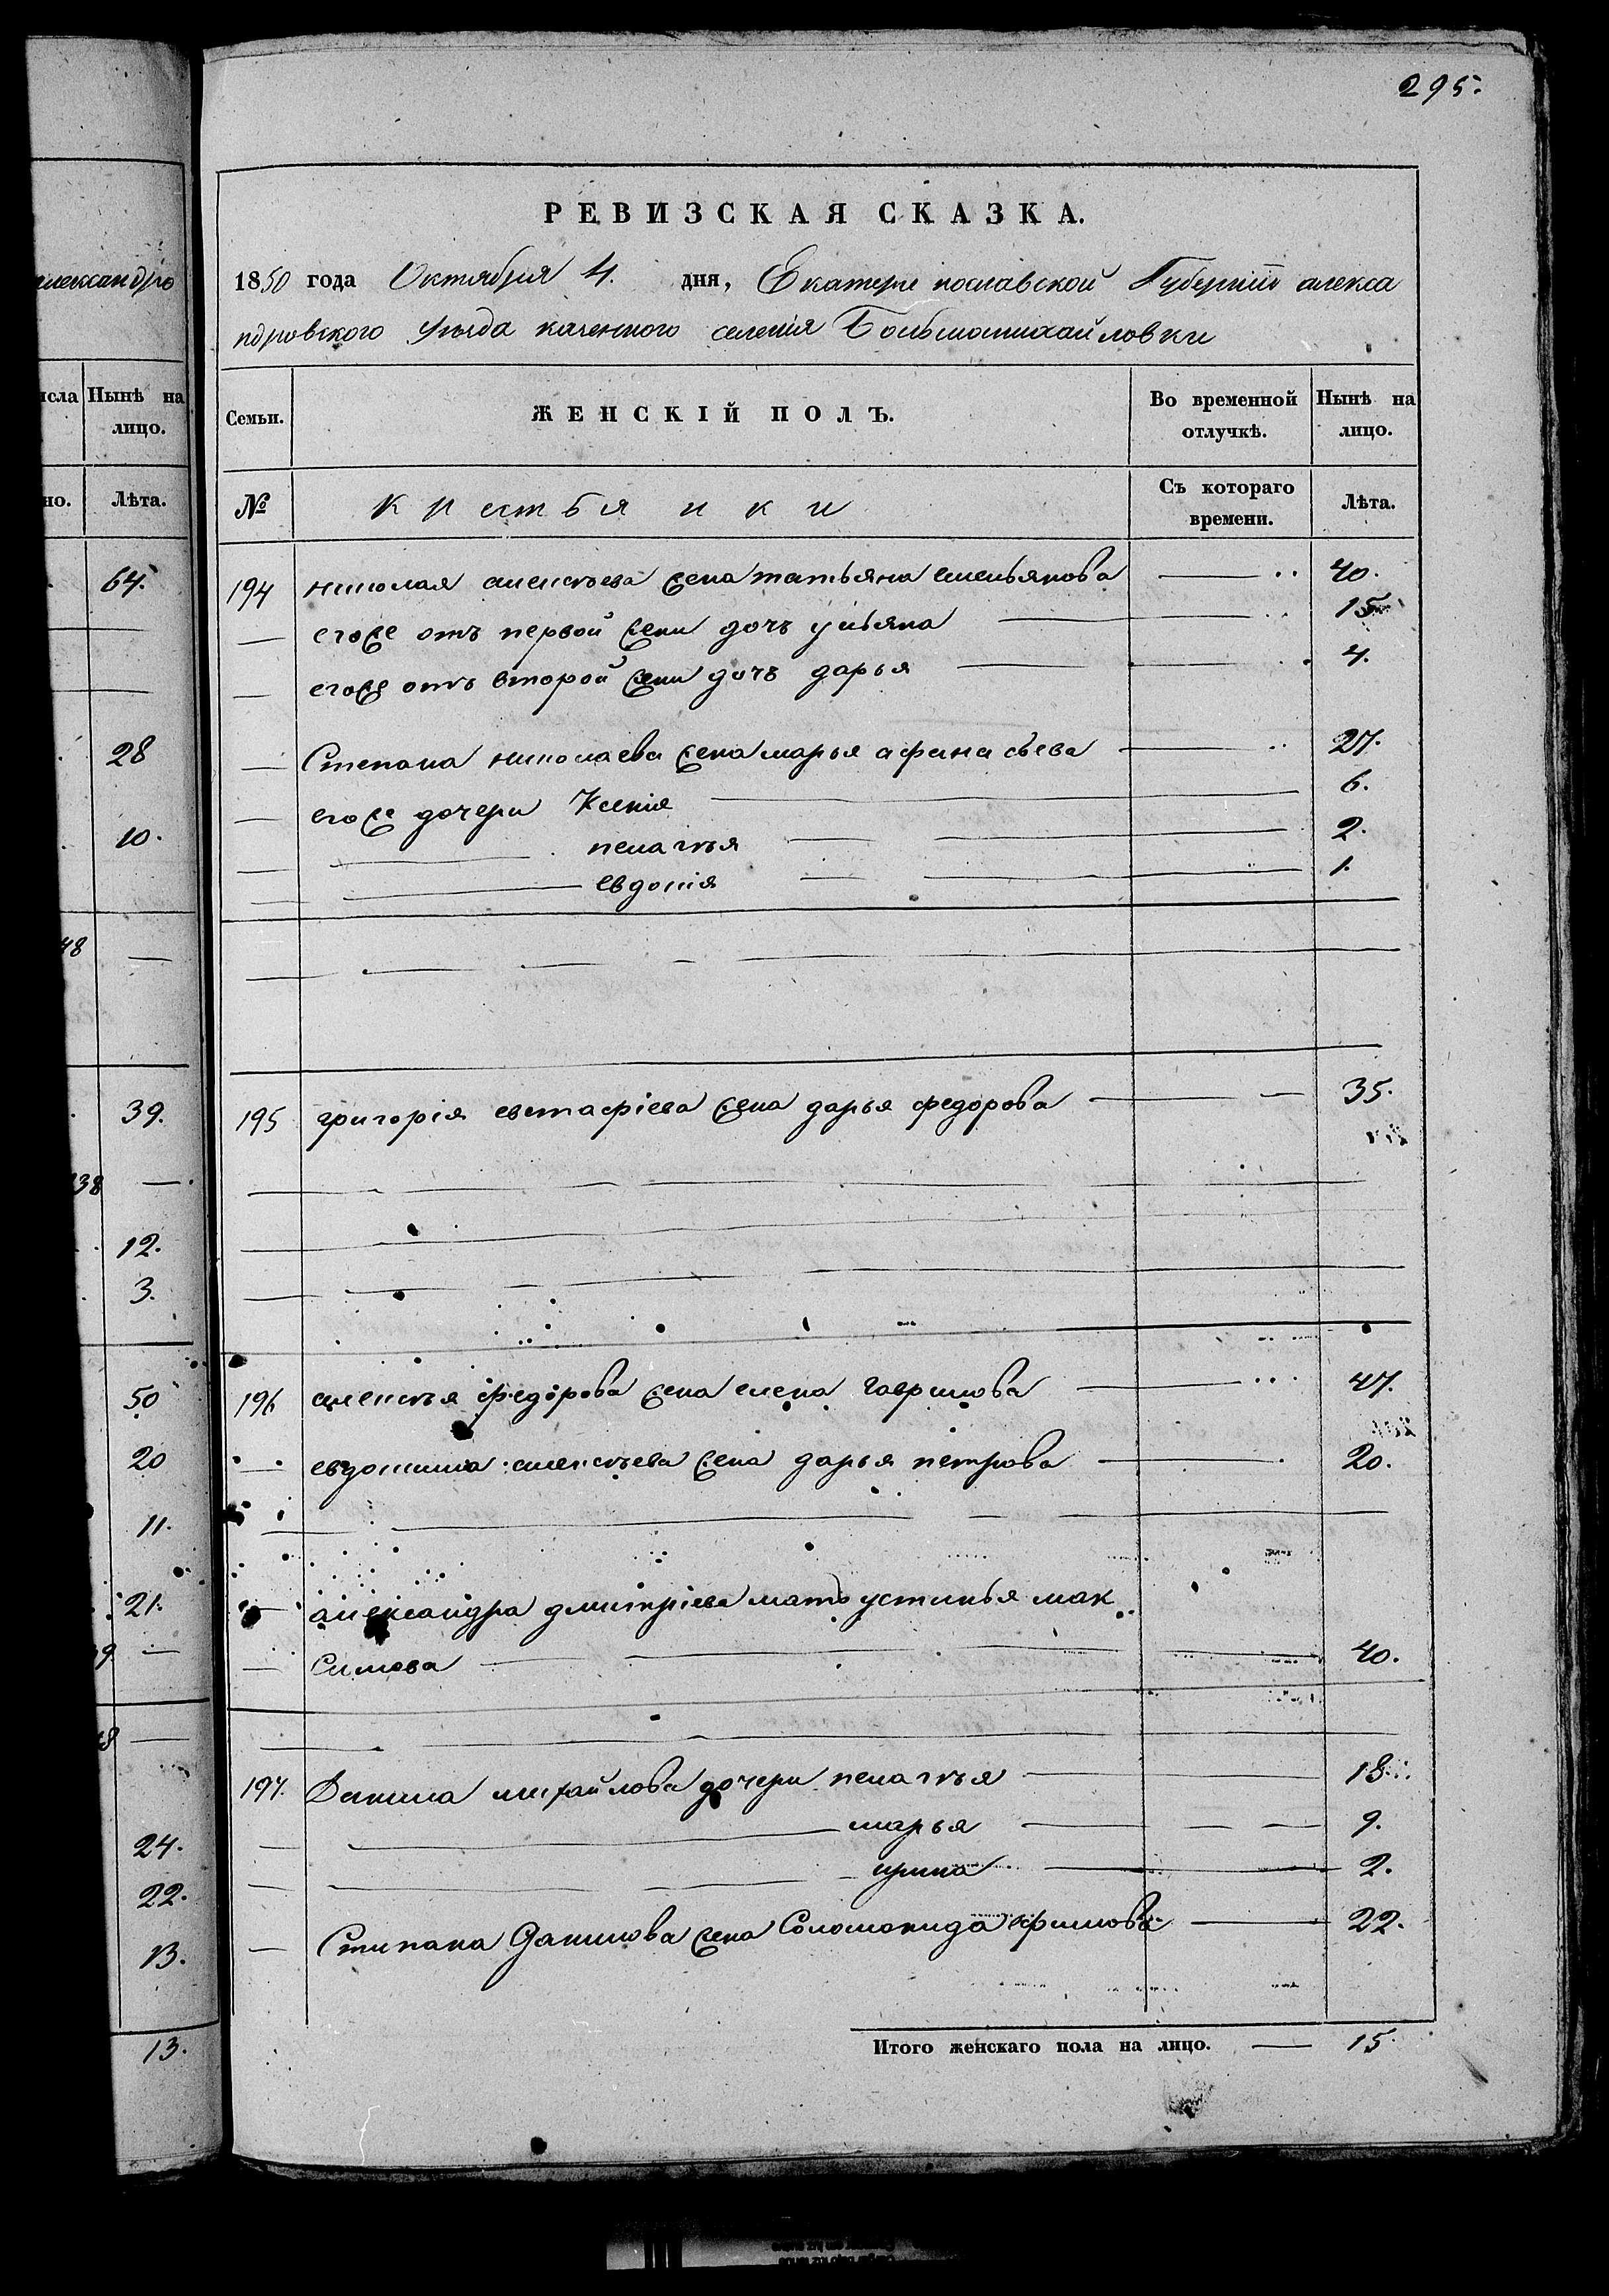 295.
РЕВИЗСКАЯ СКАЗКА.
1850 года Октября 4. дня, Екатеринославской Губерніи алекса
ндровского уѣзда казенного селенія Большомихайловки
Семьи.
ЖЕНСКІЙ ПОЛЪ.
Во временной отлучкѣ.
Нынѣ на лицо.
№
крестьянки
Съ котораго времени.
Лѣта.
194 николая алексѣева жена татьяна емельянова 40.
его же отъ первой жени дочъ ульяна 15
его же отъ второй жени дочъ дарья 4.
Степана николаева жена марья афанасьева 27.
его же дочери Ксенія 6.
пелагѣя 2.
евдокія 1.
195 григорія евстафіева жена дарья федорова 35.
196 алексѣя федорова жена елена гаврилова 47.
евдокима алексѣева жена дарья петрова 20.
александра дмитріева мать устинья мак
симова 40.
197. Данила михайлова дочери пелагѣя 18.
марья 9.
ирина 2.
Стипана Данилова жена Соломонида ефимова 22.
Итого женскаго пола на лицо. 15.
александро
исла
Нынѣ на
лицо.
но.
Лѣта.
64.
28
10.
48
39.
38
12.
3.
50
20
11.
21.
9
8
24.
22.
13.
13.